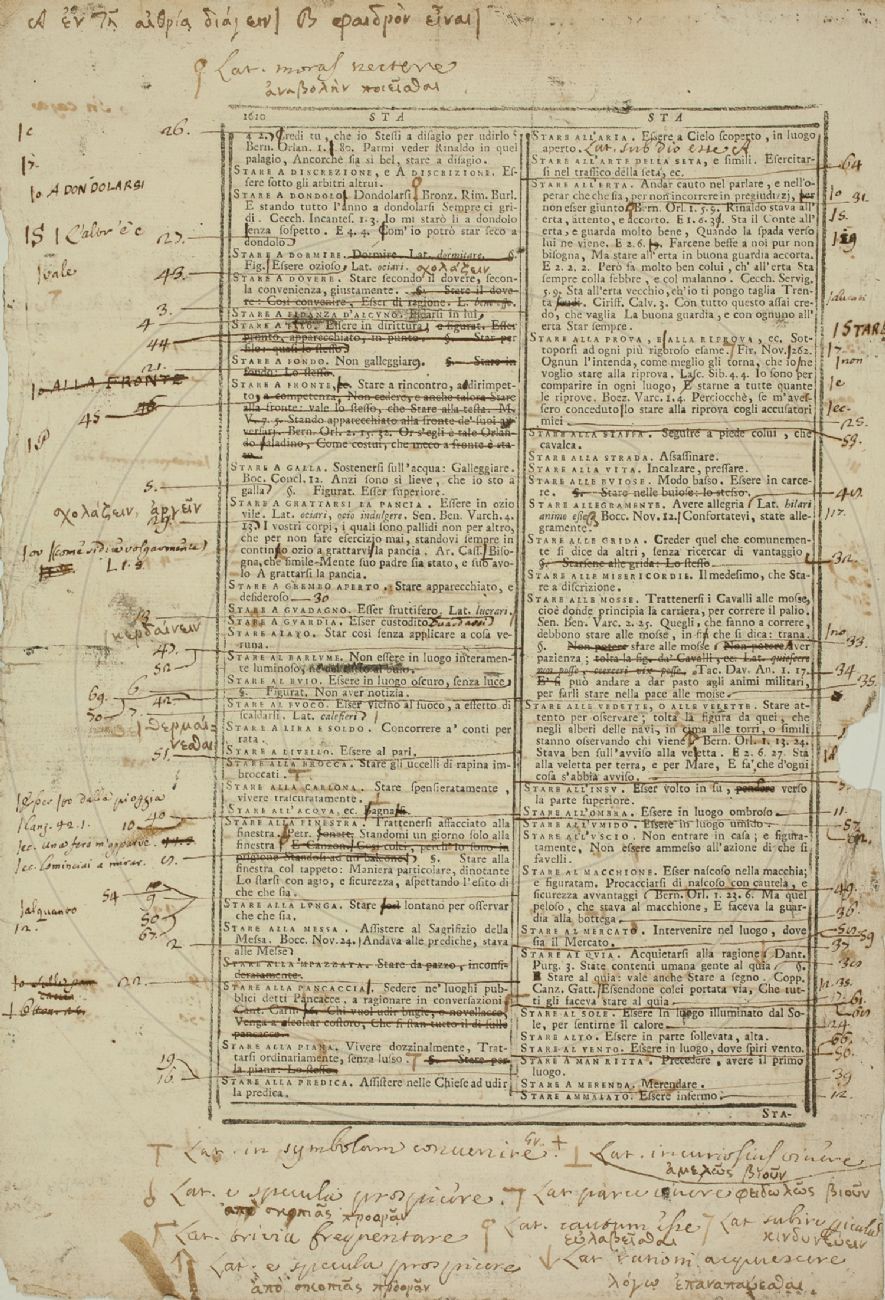 A ἐν τῇ αἰθρίᾳ διάγειν] B φαιδρὸν εἶναι]
Lat. moras nectere
ἀναβολὴν ποιεῖσθαι
1610 STA
4 2. Credi tu, che io Stessi a disagio per udirlo
Bern. Orlan. 1. 80. Parmi veder Rinaldo in quel
palagio, Ancorchè sia sì bel, stare a disagio.
STARE A DISCREZIONE, e A DISCRIZIONE. Es-
sere sotto gli arbitri altrui.
STARE A DONDOLO. Dondolarsi Bronz. Rim. Burl.
E stando tutto l'anno a dondolarsi Sempre ci gri-
di. Cecch. Incantes. 1. 3. Io mi starò lì a dondolo
senza sospetto. E 4. 4. Com'io potrò star seco a
dondolo
STARE A DORMIRE. Dormire. Lat. dormitare. §.
Fig. Essere ozioso, Lat. ociari. σχολάζειν
STARE A DOVERE. Stare secondo il dovere, secon-
la convenienza, giustamente. §. Stare il dove-
re: Così convenire, Esser di ragione. L.
STARE A FIDANZA D'ALCUNO. Fidarsi in lui,
STARE A FILO. Essere in dirittura, e figurat. Esser
pronto, apparecchiato, in punto. §. Star per
filo: quasi lo stesso
STARE A FONDO. Non galleggiare. §. Stare in
fondo: Lo stesso.
STARE A FRONTE, Stare a rincontro, a dirimpet-
to, a competenza, Non cedere, e anche talora Stare
alla fronte: vale lo stesso, che Stare alla testa. M.
V. 7. 5. Stando apparecchiato alla fronte de' suoi av
versarj. Bern. Orl. 2. 15. 32. Or s'egli è tale Orlan-
do paladino, Come costui, che meco a fronte è sta-
to.
STARE A GALLA. Sostenersi sull'acqua: Galleggiare.
Boc. Concl. 12. Anzi sono sì lieve, che io sto a
galla §. Figurat. Esser superiore.
STARE A GRATTARSI LA PANCIA. Essere in ozio
vile. Lat. ociari, ocio indulgere. Sen. Ben. Varch. 4.
13. I vostri corpi, i quali sono pallidi non per altro,
che per non fare esercizio mai, standovi sempre in
continovo ozio a grattarvi la pancia. Ar. Cass. Biso-
gna, che simile-Mente suo padre sia stato, e suo avo-
lo A grattarsi la pancia.
STARE A GREMBO APERTO. Stare apparecchiato, e
desideroso. 30
STARE A GUADAGNO. Esser fruttifero. Lat. lucrari.
STARE A GUARDIA. Esser custodito
STARE ALATO. Star così senza applicare a cosa ve-
runa.
STARE AL BARLUME. Non essere in luogo interamen-
te luminoso,
STARE AL BUIO. Essere in luogo oscuro, senza luce
§. Figurat. Non aver notizia.
STARE AL FUOCO. Esser vicino al fuoco, a effetto di
scaldarsi. Lat. calefieri
STARE A LIRA E SOLDO. Concorrere a' conti per
rata.
STARE A LIVELLO. Essere al pari.
STARE ALLA BROCCA. Stare gli uccelli di rapina im-
broccati.
STARE ALLA CARLONA. Stare spensieratamente,
vivere trascuratamente.
STARE ALL'ACQUA, ec. Bagnarsi.
STARE ALLA FINESTRA. Trattenersi affacciato alla
finestra. Petr. Sonett. Standomi un giorno solo alla
finestra E Canzon. Così colei, perch'io sono in
prigione Standosi ad un balcone §. Stare alla
finestra col tappeto: Maniera particolare, dinotante
Lo starsi con agio, e sicurezza, aspettando l'esito di
che che sia.
STARE ALLA LUNGA. Stare lontano per osservar
che che sia.
STARE ALLA MESSA. Assistere al Sagrifizio della
Messa. Bocc. Nov. 24. Andava alle prediche, stava
alle Messe
STARE ALLA IMPAZZATA. Stare da pazzo, inconsi-
deratamente.
STARE ALLA PANCACCIA. Sedere ne' luoghi pub-
blici detti Pancacce, a ragionare in conversazioni
Cant. Carn. 16. Chi vuol udir bugie, o novellacce,
Venga a ascoltar costoro, Che si stan tutto il dì sulle
pancacce.
STARE ALLA PIANA. Vivere dozzinalmente, Trat-
tarsi ordinariamente, senza lusso. §. Stare per
la piana: Lo stesso.
STARE ALLA PREDICA. Assistere nelle Chiese ad udir
la predica.
STA
STARE ALL'ARIA. Essere a Cielo scoperto, in luogo
aperto. Lat. sub dio esse A
STARE ALL'ARTE DELLA SETA, e simili. Esercitar-
si nel traffico della seta, ec.
STARE ALL'ERTA. Andar cauto nel parlare, e nell'o-
perar che che sia, per non incorrere in pregiudizj,
non esser giunto. Bern. Orl. 1. 5. 9. Rinaldo stava all'
erta, attento, e accorto. E 1. 6. 3. Sta il Conte all'
erta, e guarda molto bene, Quando la spada verso
lui ne viene. E 2. 6. Farcene beffe a noi pur non
bisogna, Ma stare all'erta in buona guardia accorta.
E 2. 2. 2. Però fa molto ben colui, ch' all' erta Sta
sempre colla febbre, e col malanno. Cecch. Servig.
5. 9. Sta all'erta vecchio, ch'io ti pongo taglia Tren-
ta scudi. Ciriff. Calv. 3. Con tutto questo assai cre-
do, che vaglia La buona guardia, e con ognuno all'
erta Star sempre.
STARE ALLA PROVA, E ALLA RIPROVA, ec. Sot-
toporsi ad ogni più rigoroso esame. Fir. Nov. 262.
Ognun l'intenda, come meglio gli torna, che io ne
voglio stare alla riprova. Lasc. Sib. 4. 4. Io sono per
comparire in ogni luogo, E starne a tutte quante
le riprove. Boez. Varc. 1. 4. Perciocchè, se m'aves-
sero conceduto lo stare alla riprova cogli accusatori
miei
STARE ALLA STAFFA. Seguire a piede colui, che
cavalca.
STARE ALLA STRADA. Assassinare.
STARE ALLA VITA. Incalzare, pressare.
STARE ALLE BUIOSE. Modo basso. Essere in carce-
re. §. Stare nelle buiose: lo stesso.
STARE ALLEGRAMENTE. Avere allegria Lat. hilari
animo esse Bocc. Nov. 12. Confortatevi, state alle-
gramente.
STARE ALLE GRIDA. Creder quel che comunemen-
te si dice da altri, senza ricercar di vantaggio
§. Starsene alle grida: Lo stesso.
STARE ALLE MISERICORDIE. Il medesimo, che Sta-
re a discrizione.
STARE ALLE MOSSE. Trattenersi i Cavalli alle mosse,
cioè donde principia la carriera, per correre il palio.
Sen. Ben. Varc. 2. 25. Quegli, che fanno a correre,
debbono stare alle mosse, in fin che si dica: trana.
§. Non potere stare alle mosse Non potere Aver
pazienza; tolta la fig. da' Cavalli, ec. Lat. quiescere
non posse, coerceri vix posse. Tac. Dav. An. 1. 17.
E' si può andare a dar pasto agli animi militari,
per farli stare nella pace alle mosse
STARE ALLE VEDETTE, O ALLE VELETTE. Stare at-
tento per osservare; tolta la figura da quei, che
negli alberi delle navi, in cima alle torri, o simili
stanno osservando chi viene Bern. Orl. 1. 13. 24.
Stava ben sull'avviso alla veletta. E 2. 6. 27. Sta
alla veletta per terra, e per Mare, E fa' che d'ogni
cosa s'abbia avviso.
STARE ALL'INSU. Esser volto in su, pendere verso
la parte superiore.
STARE ALL'OMBRA. Essere in luogo ombroso
STARE ALL'UMIDO. Essere in luogo umido.
STARE ALL'USCIO. Non entrare in casa; e figura-
tamente, Non essere ammesso all'azione di che si
favelli.
STARE AL MACCHIONE. Esser nascoso nella macchia;
e figuratam. Procacciarsi di nascoso con cautela, e
sicurezza avvantaggi Bern. Orl. 1. 23. 6. Ma quel
peloso, che stava al macchione, E faceva la guar-
dia alla bottega.
STARE AL MERCATO. Intervenire nel luogo, dove
sia il Mercato.
STARE AL QUIA. Acquietarsi alla ragione Dant.
Purg. 3. State contenti umana gente al quia §.
Stare al quia: vale anche Stare a segno. Copp.
Canz. Gatt. Essendone colei portata via, Che tut-
ti gli faceva stare al quia
STARE AL SOLE. Essere in luogo illuminato dal So-
le, per sentirne il calore
STARE ALTO. Essere in parte sollevata, alta.
STARE AL VENTO. Essere in luogo, dove spiri vento.
STARE A MAN RITTA. Precedere, avere il primo
luogo.
STARE A MERENDA. Merendare.
STARE AMMALATO. Essere infermo.
STA-
26.
A DONDOLARSI
L'altr' è
27.
vale
43.
3.
4
44
21.
ALLA FRONTE
45
5.
σχολάζειν, ἀργεῖν
29.
(come si dice volgarmente)
κερδαίνειν
θερμαί-
νεσθαι
51.
alquanto
54
2
22.
19
16.
64
31.
STARE
25.
59.
32.
33.
34
35.
11.
49.
36.
37
24.
39
12.
Lat. in symbolam convenire. Lat. incuriosius vivere
ἀμελῶς βιοῦν
Lat. e specula prospicere. Lat. parce vivere φειδωλῶς βιοῦν
ἀπὸ σκοπιᾶς προορᾶν
Lat. trivia frequentare Lat. cautum esse Lat. subire pericula
εὐλαβεῖσθαι κινδυνεύειν
Lat. e specula prospicere Lat. rationi acquiescere
ἀπὸ σκοπιᾶς προορᾶν λόγῳ ἐπαναπαύεσθαι